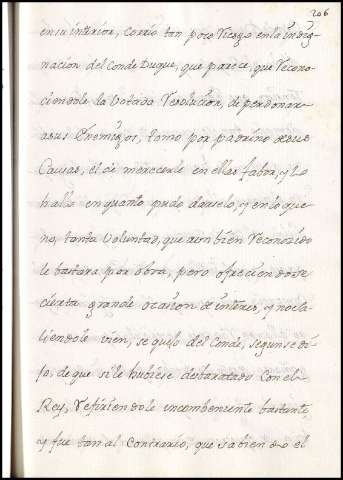 206
en su interior, corrio tan poco riesgo en la indig-
nacion del Conde Duque, que parece, que recono-
ciendole la Votada resolucion, de perdonar
a sus Enemigos, tomo por padrino de sus
Causas, el de merecerle en ellas fabor, y lo
hallo en quanto pudo darselo, y en lo que
no, tanta Voluntad, que aun bien reconozido
le bastara por obra, pero ofreciendose
cierta grande ocasion de interes, y no sa-
liendole vien, se quejo del Conde, segun se di-
jo, de que si le hubiese desbaratado con el
Rey, refiriendole incombeniente bastante,
y fue tan al Contrario, que sabiendo el